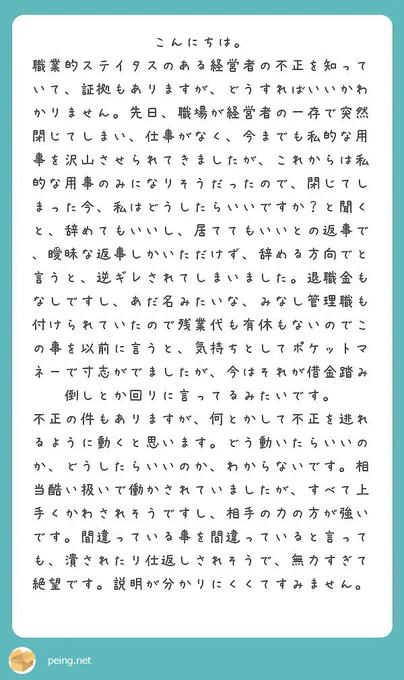 こんにちは。
職業的ステイタスのある経営者の不正を知って
いて、証拠もありますが、どうすればいいかわ
かりません。先日、職場が経営者の一存で突然
閉じてしまい、仕事がなく、今までも私的な用
事を沢山させられてきましたが、これからは私
的な用事のみになりそうだったので、閉じてし
まった今、私はどうしたらいいですか？と聞く
と、辞めてもいいし、居ててもいいとの返事で
、曖昧な返事しかいただけず、辞める方向でと
言うと、逆ギレされてしまいました。退職金も
なしですし、あだ名みたいな、みなし管理職も
付けられていたので残業代も有休もないのでこ
の事を以前に言うと、気持ちとしてポケットマ
ネーで寸志がでましたが、今はそれが借金踏み
倒しとか回りに言ってるみたいです。
不正の件もありますが、何とかして不正を逃れ
るように動くと思います。どう動いたらいいの
か、どうしたらいいのか、わからないです。相
当酷い扱いで働かされていましたが、すべて上
手くかわされそうですし、相手の力の方が強い
です。間違っている事を間違っていると言って
も、潰されたり仕返しされそうで、無力すぎて
絶望です。説明が分かりにくくてすみません。
peing.net